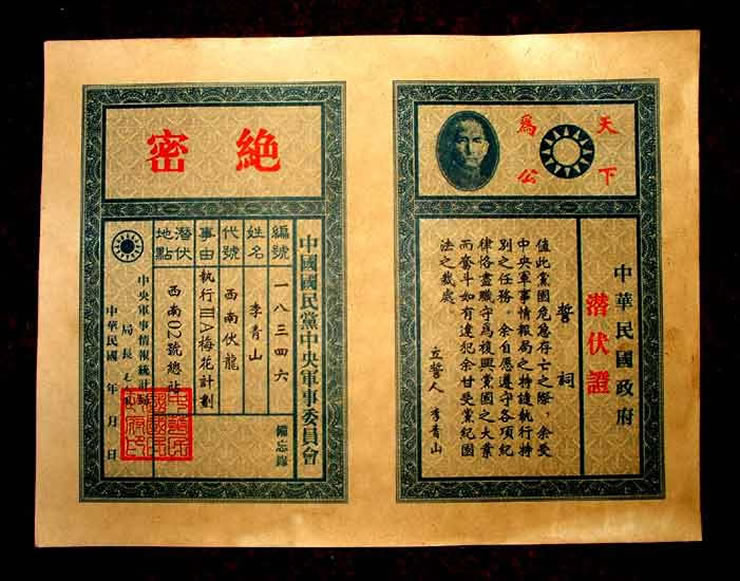 天下
爲公
中華民國政府
潛伏證
誓詞
值此黨國危急存亡之際，余受
中央軍事情報局之特譴執行特
別之任務。余自愿遵守各項紀
律恪盡職守爲復興黨國之大業
而奮斗如有違犯余甘受黨紀國
法之裁處
立誓人 李青山
絕密
中國國民黨中央軍事委員會
備忘錄
編號 一八三四六
姓名 李青山
代號 西南伏龍
事由 執行ⅢA梅花計劃
潛伏地點 西南02號總站
中央軍事情報統計局
局長
中華民國 年 月 日